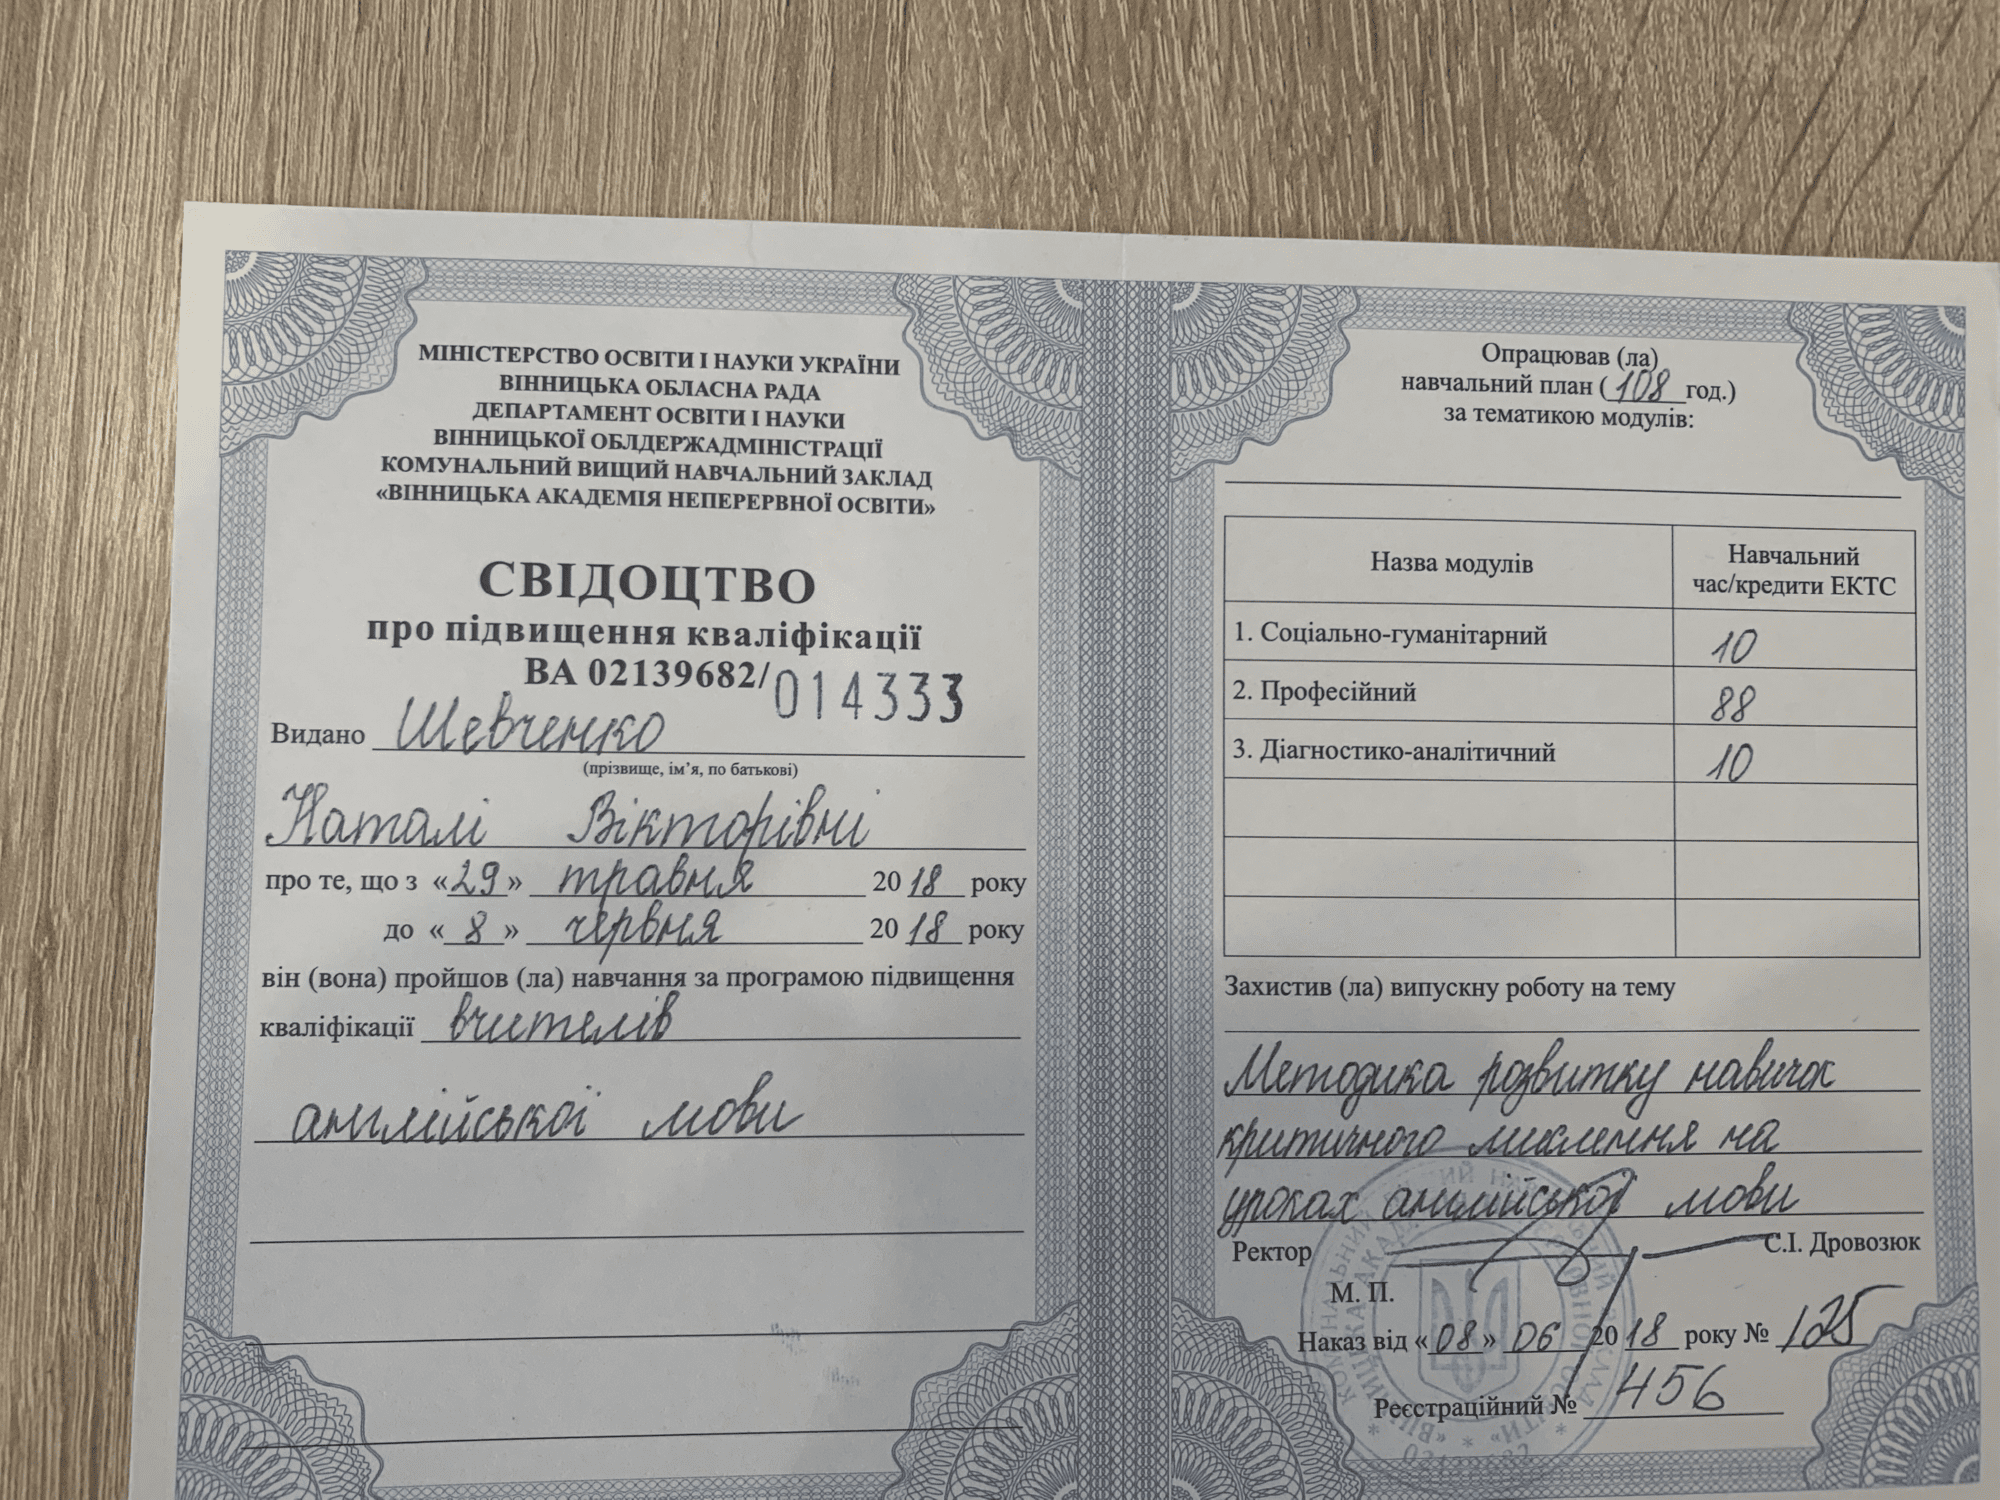 МІНІСТЕРСТВО ОСВІТИ І НАУКИ УКРАЇНИ
ВІННИЦЬКА ОБЛАСНА РАДА
ДЕПАРТАМЕНТ ОСВІТИ І НАУКИ
ВІННИЦЬКОЇ ОБЛДЕРЖАДМІНІСТРАЦІЇ
КОМУНАЛЬНИЙ ВИЩИЙ НАВЧАЛЬНИЙ ЗАКЛАД
«ВІННИЦЬКА АКАДЕМІЯ НЕПЕРЕРВНОЇ ОСВІТИ»
СВІДОЦТВО
про підвищення кваліфікації
ВА 02139682/014333
Видано Шевченко
(прізвище, ім’я, по батькові)
Наталі Вікторівні
про те, що з «29» травня 2018 року
до «8» червня 2018 року
він (вона) пройшов (ла) навчання за програмою підвищення
кваліфікації вчителів
англійської мови
Опрацював (ла)
навчальний план (108 год.)
за тематикою модулів:
Назва модулів
Навчальний
час/кредити ЕКТС
1. Соціально-гуманітарний 10
2. Професійний 88
3. Діагностико-аналітичний 10
Захистив (ла) випускну роботу на тему
Методика розвитку навичок
критичного мислення на
уроках англійської мови
Ректор С.І. Дровозюк
М. П.
Наказ від «08» 06 2018 року № 125
Реєстраційний № 456